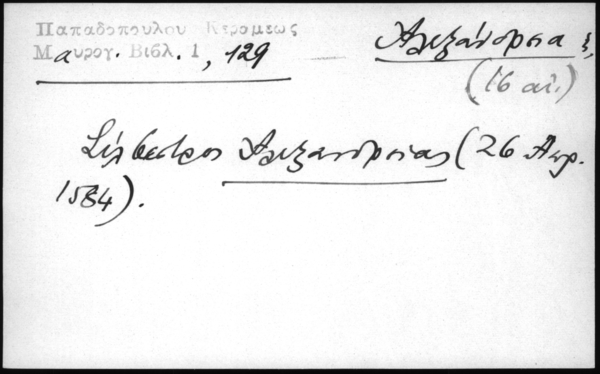 Παπαδοπούλου Κεραμεως
Μαυρογ. Βιβλ. 1, 129
Ἀλεξάνδρεια
(16 αἰ.)
Σίλβεστρος Ἀλεξανδρείας (26 Ἀπρ.
1584).